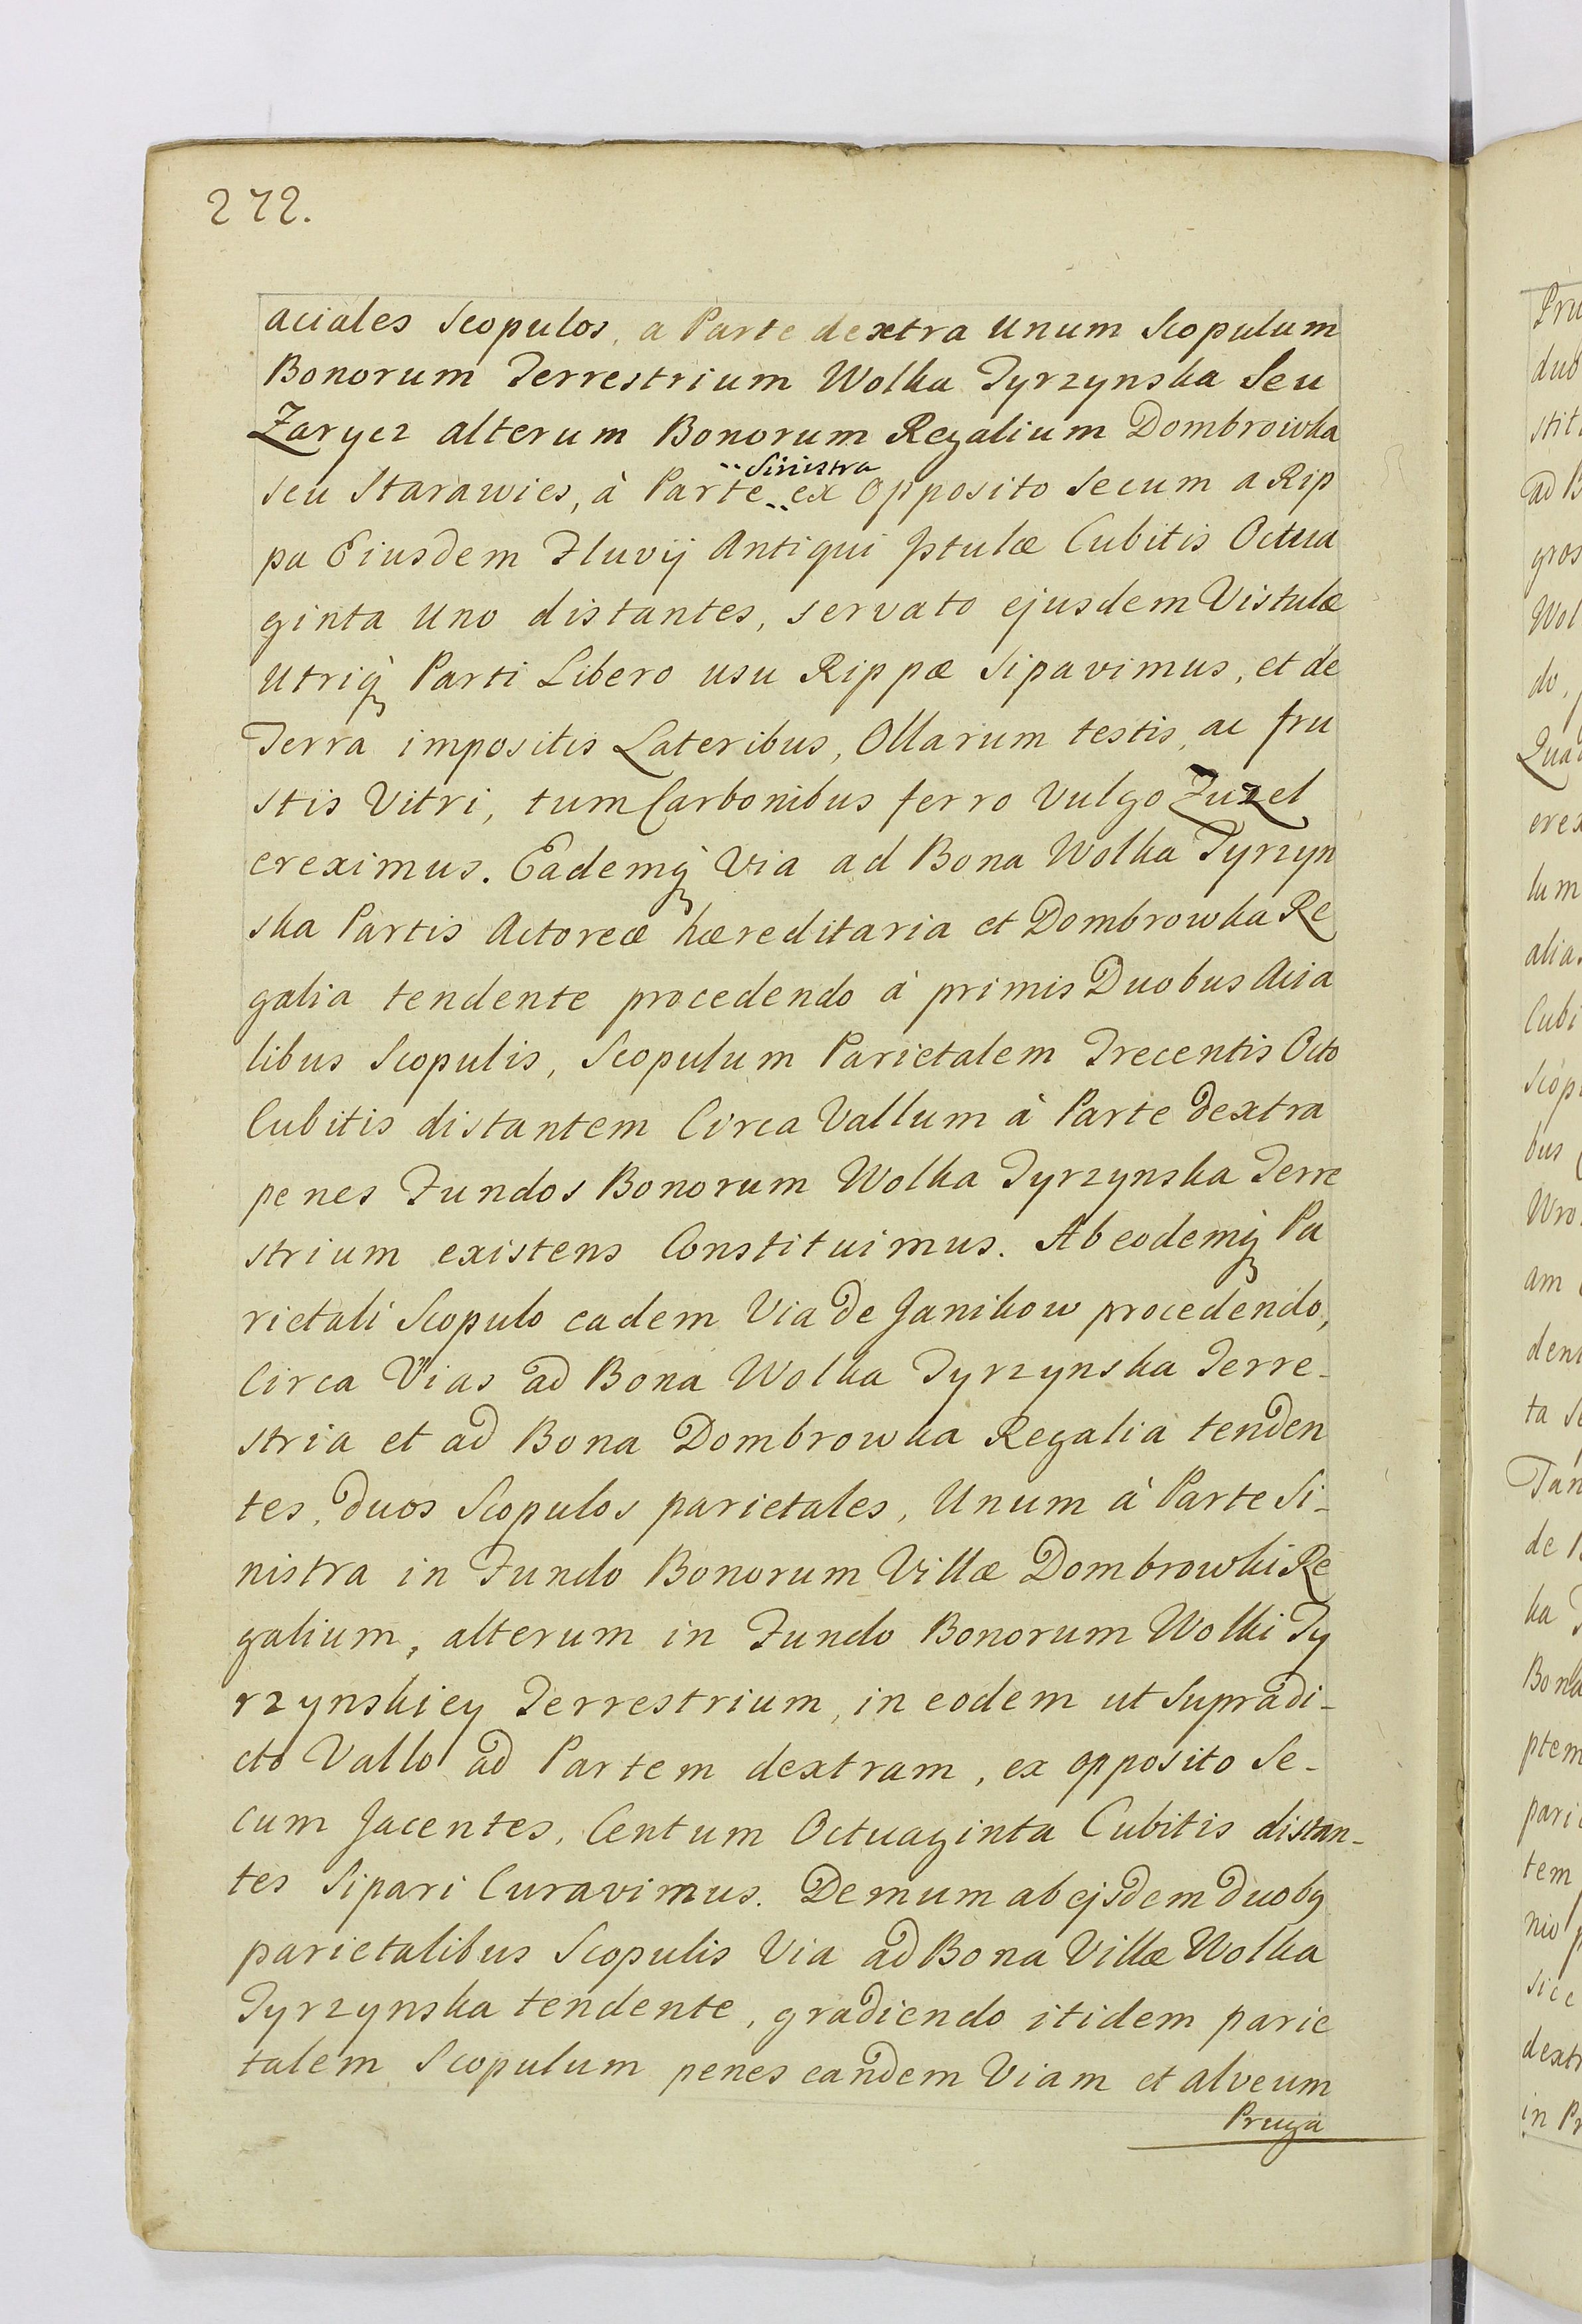 272.
aciales Scopulos, a Parte dextra unum Scopulum
Bonorum Terrestrium Wolka Tyrzynska Seu
Zarycz alterum Bonorum Regalium Dombrowka
seu Starawies, à Parte ex Opposito Secum a Rip
Sinistra
pa Eiusdem Fluvij Antiqui Istulæ Cubitis Octua
ginta uno distantes, servato ejusdem Vistulæ
utriq̀ Parti Libero usu Rippæ Sipavimus, et de
Terra impositis Lateribus, Ollarum testis, ac fru
stis Vitri, tum Carbonibus ferro vulgo Zuzel
ereximus. Eademq̀ Via ad Bona Wolka Tyrzyn
ska Partis Actoreæ hæreditaria et Dombrowka Re
galia tendente procedendo à primis Duobus Acia
libus Scopulis, Scopulum Parietalem Trecentis Octo
Cubitis distantem Circa Vallum à Parte Dextra
penes Fundos Bonorum Wolka Tyrzynska Terre
strium existens Constituimus. Ab eodemq̀ Pa
rietali Scopulo eadem Via de Janikow procedendo,
Circa Vias ad Bona Wolka Tyrzynska Terre-
stria et ad Bona Dombrowka Regalia tenden
tes, duos Scopulos parietales, Unum à Parte Si-
nistra in Fundo Bonorum Villæ Dombrowki Re
galium, alterum in Fundo Bonorum Wolki Ty
rzynskiey Terrestrium, in eodem ut Supradi-
cto Vallo ad Partem dextram, ex opposito Se-
cum Jacentes, Centum Octuaginta Cubitis distan-
tes Sipari Curavimus. Demum ab ejsdem duobq
parietalibus Scopulis Via ad Bona Villæ Wolka
Tyrzynska tendente, gradiendo itidem parie
talem Scopulum penes eandem Viam et alveum
Pruga
Pru
duo
stit
ad B
gros
Wol
do,
Qua
erex
lum
alia
Cubi
Scop
bus
Wro
am
den
ta S
Tan
de
ka
Bon
ptem
pari
tem
nio
sicc
dext
in Pr